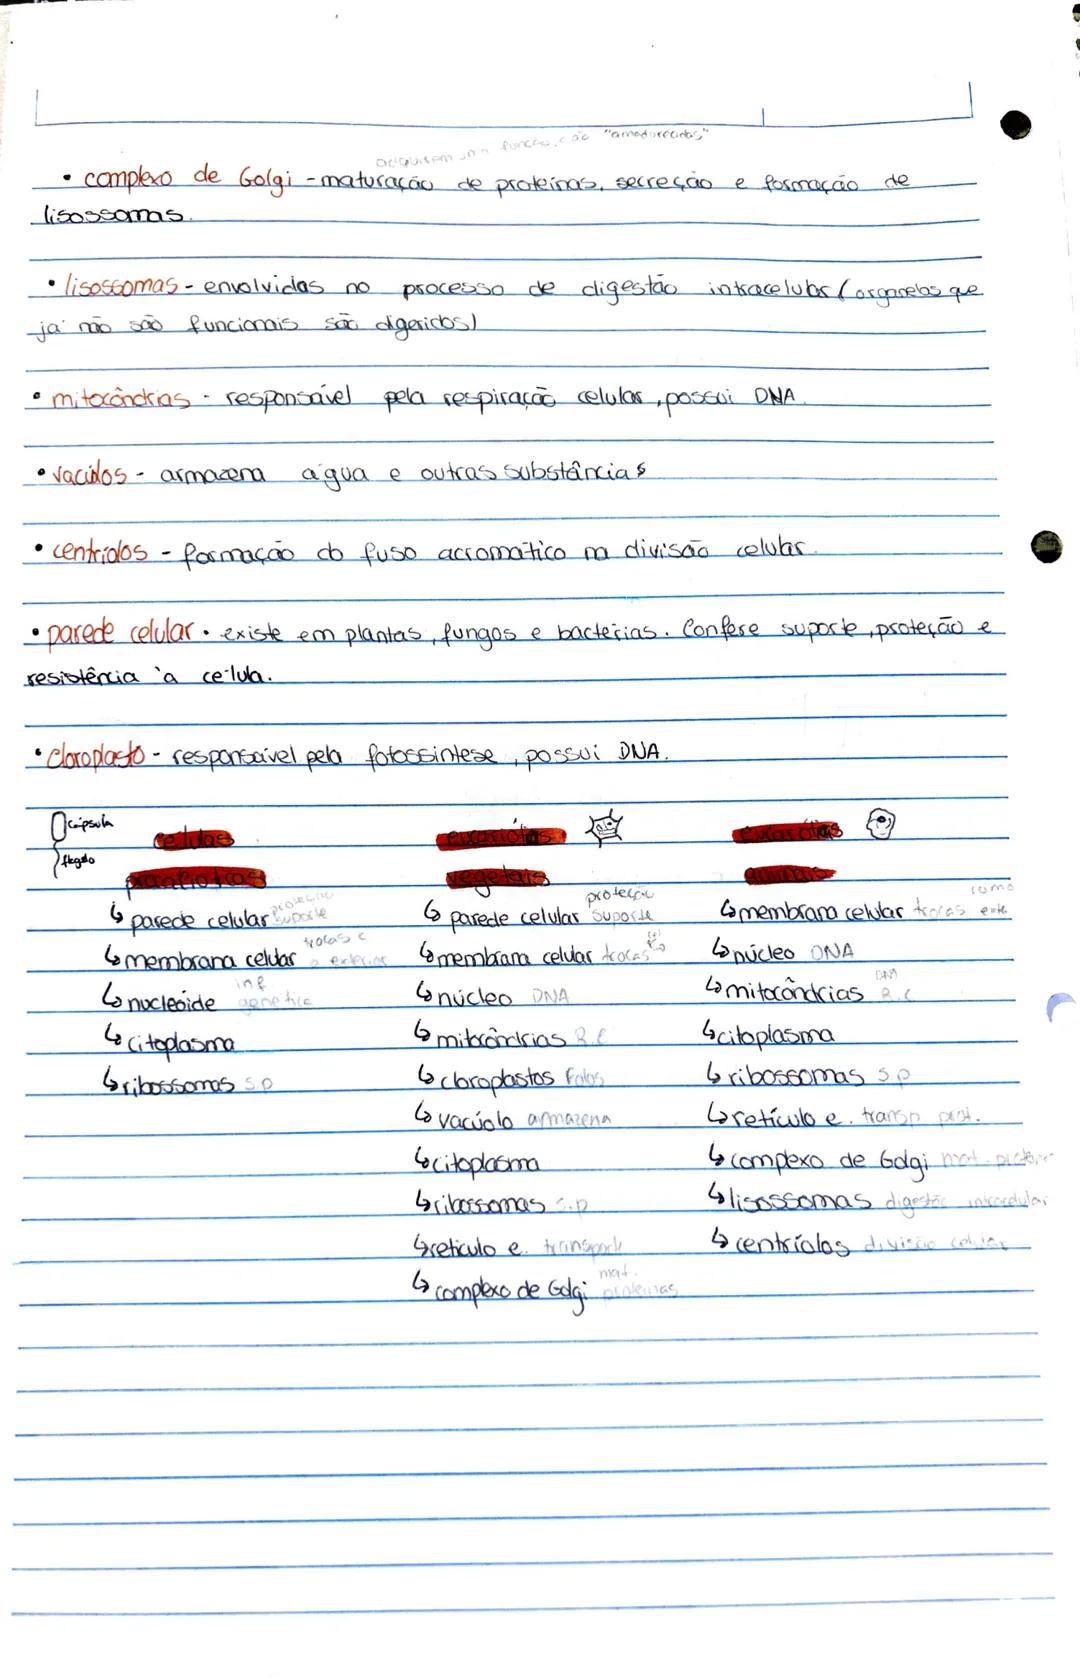 adquirem uma função, são "amadurecidas"
• complexo de Golgi - maturação de proteínas, secreção e formação de
lisossomas.
• lisossomas - envolvidas no processo de digestão intracelular (organelos que
já não são funcionais são digeridos)
• mitocôndrias - responsável pela respiração celular, possui DNA.
• vacúolos - armazena água e outras substâncias
• centríolos - formação do fuso acromático na divisão celular.
• parede celular • existe em plantas, fungos e bactérias. Confere suporte, proteção e
resistência à célula.
• cloroplasto - responsável pela fotossíntese, possui DNA.
cápsula
flagelo
células
procarióticas
↳ parede celular proteção suporte
↳ membrana celular trocas c o exterior
↳ nucleóide inf genética
↳ citoplasma
↳ ribossomas S.P
eucarióticas
vegetais
↳ parede celular proteção suporte
↳ membrana celular trocas
↳ núcleo DNA
↳ mitocôndrias R.C
↳ cloroplastos fotos
↳ vacúolo armazena
↳ citoplasma
↳ ribossomas S.P
↳ retículo e. transporte
↳ complexo de Golgi mat. proteínas
eucarióticas
animais
↳ membrana celular trocas como ext.
↳ núcleo DNA
↳ mitocôndrias DNA R.C
↳ citoplasma
↳ ribossomas S.P
↳ retículo e. transp prot.
↳ complexo de Golgi mat.
↳ lisossomas digestão intracelular
↳ centríolos divisão celular